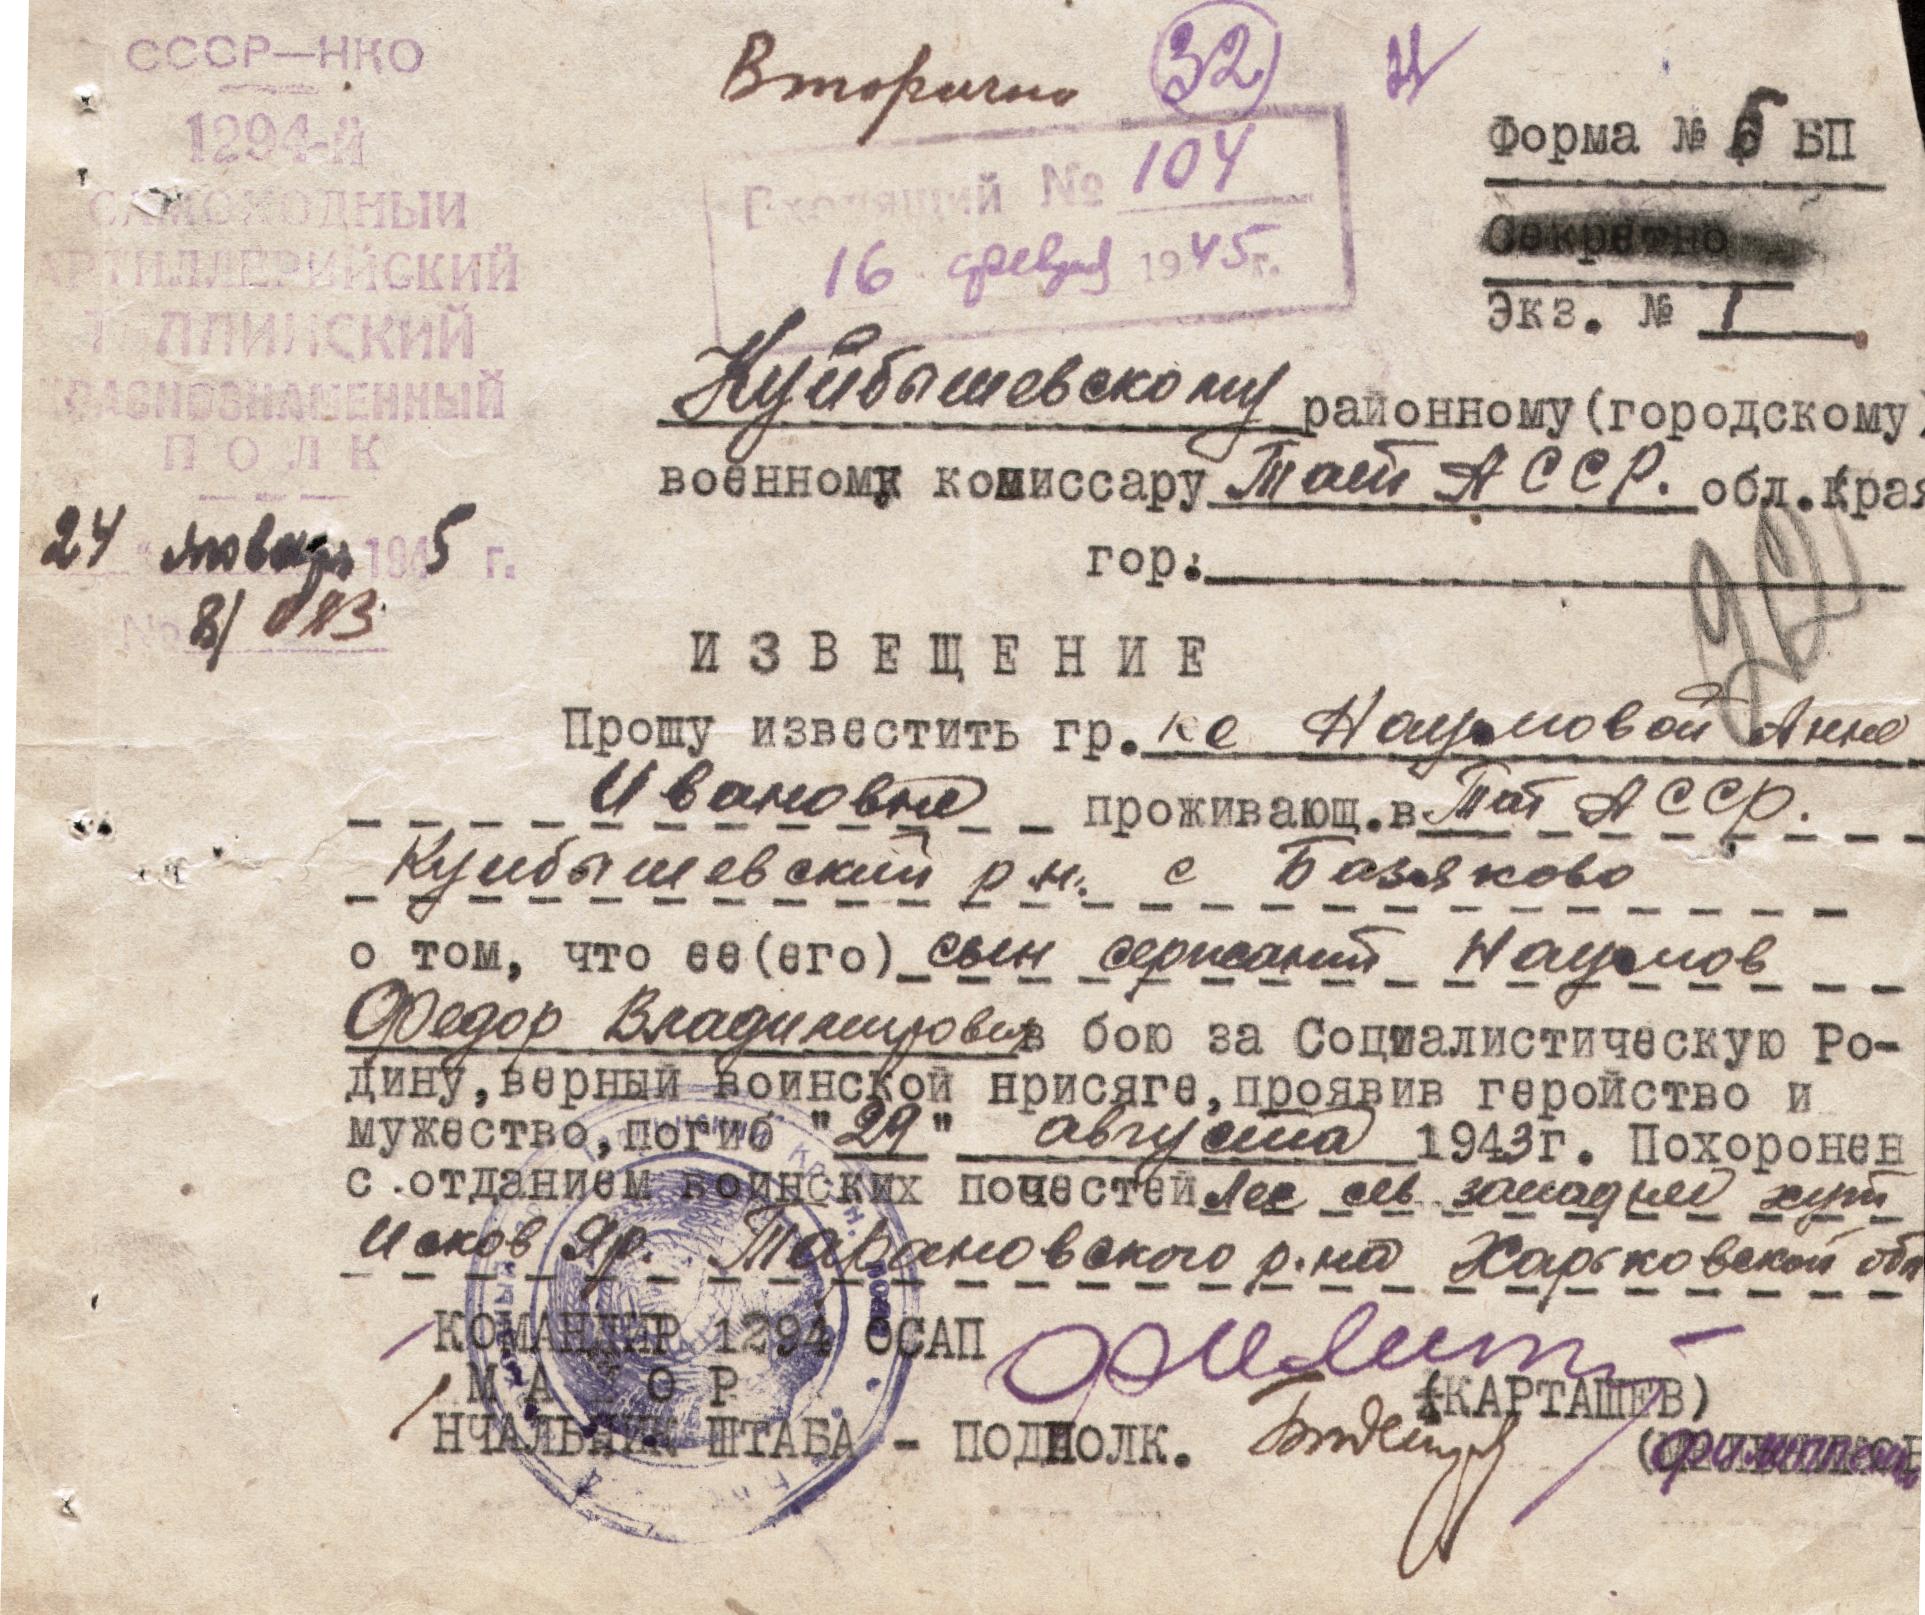 СССР—НКО
1294-й
САМОХОДНЫЙ
АРТИЛЛЕРИЙСКИЙ
ТАЛЛИНСКИЙ
КРАСНОЗНАМЕННЫЙ
ПОЛК
24 " январь 1945 г.
№ 8/
Вторично 32
Входящий № 104
16 февраля 1945 г.
Форма № Б БП
Секретно
Экз. № 1
Куйбышевскому районному (городскому)
военному комиссару Тат АССР. обл. края
гор.
ИЗВЕЩЕНИЕ
Прошу известить гр. ке Наумовой Анне
Ивановне проживающ. в Тат АССР.
Куйбышевский р.н. с Базяково
о том, что ее(его) сын сержант Наумов
Федор Владимирович в бою за Социалистическую Ро-
дину, верный воинской присяге, проявив геройство и
мужество, погиб "29" августа 1943г. Похоронен
с отданием воинских почестей Лес сев западнее хут
Исков Яр. Тарановского р.на Харьковской обл
КОМАНДИР 1294 ОСАП
МАЙОР
(КАРТАШЕВ)
НЧАЛЬНИК ШТАБА - ПОДПОЛК.